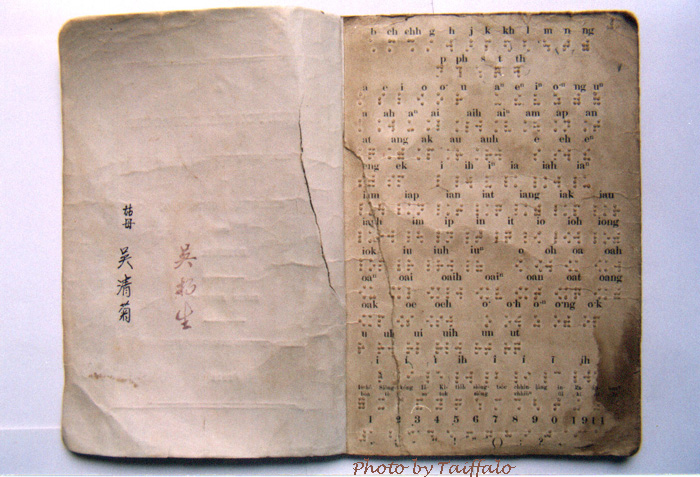 姑母 吳清菊
b ch chh g h j k kh l m n ng
p ph s t th
a e i o o· u aⁿ eⁿ iⁿ o·ⁿ ng uⁿ
a ah aⁿ ai aih aiⁿ am ap an
at ang ak au auh e eh eⁿ
eng ek i ih iⁿ ia iah iaⁿ
iam iap ian iat iang iak iau
iauh im ip in it io ioh iong
iok iu iuh iuⁿ o oh oa oah
oaⁿ oai oaih oaiⁿ oan oat oang
oak oe oeh o· o·h o·ⁿ o·ng o·k
u uh ui uih un ut
1 2 3 4 5 6 7 8 9 0 1911
Photo by Taiffalo